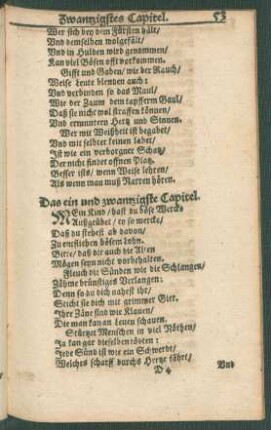 Zwantzigstes Capitel. 53
Wer sich bey dem Fürsten hält/
Vnd demselben wolgefält/
Vnd in Hulden wird genommen/
Kan viel Bösen offt vorkommen.
Gifft und Gaben/ wie der Rauch/
Weise Leute blenden auch:
Vnd verbinden so das Maul/
Wie der Zaum dem tapffern Gaul/
Daß sie nicht wol straffen können/
Vnd ermuntern Hertz und Sinnen.
Wer mit Weißheit ist begabet/
Vnd mit selber keinen labet/
Ist wie ein verborgner Schatz/
Der nicht findet offnen Platz.
Besser ists/ wenn Weise lehren/
Als wenn man muß Narren hören.
Das ein und zwantzigste Capitel.
MEin Kind/ hast du böse Wercke
Außgrübet/ ey so mercke/
Daß du stehest ab davon/
Zu entfliehen bösem Lohn.
Bitte/ daß dir auch die Alten
Mögen seyn nicht vorbehalten.
Fleuch die Sünden wie die Schlangen/
Zähme brünstiges Verlangen:
Denn so du dich nahest ihr/
Sticht sie dich mit grimmer Gier.
Ihre Zäne sind wie Klauen/
Die man kan an Leuen schauen.
Stürtzet Menschen in viel Nöthen/
Ja kan gar dieselben tödten:
Jede Sünd ist wie ein Schwerdt/
Welches scharff durchs Hertze fährt/
D 4 Vnd